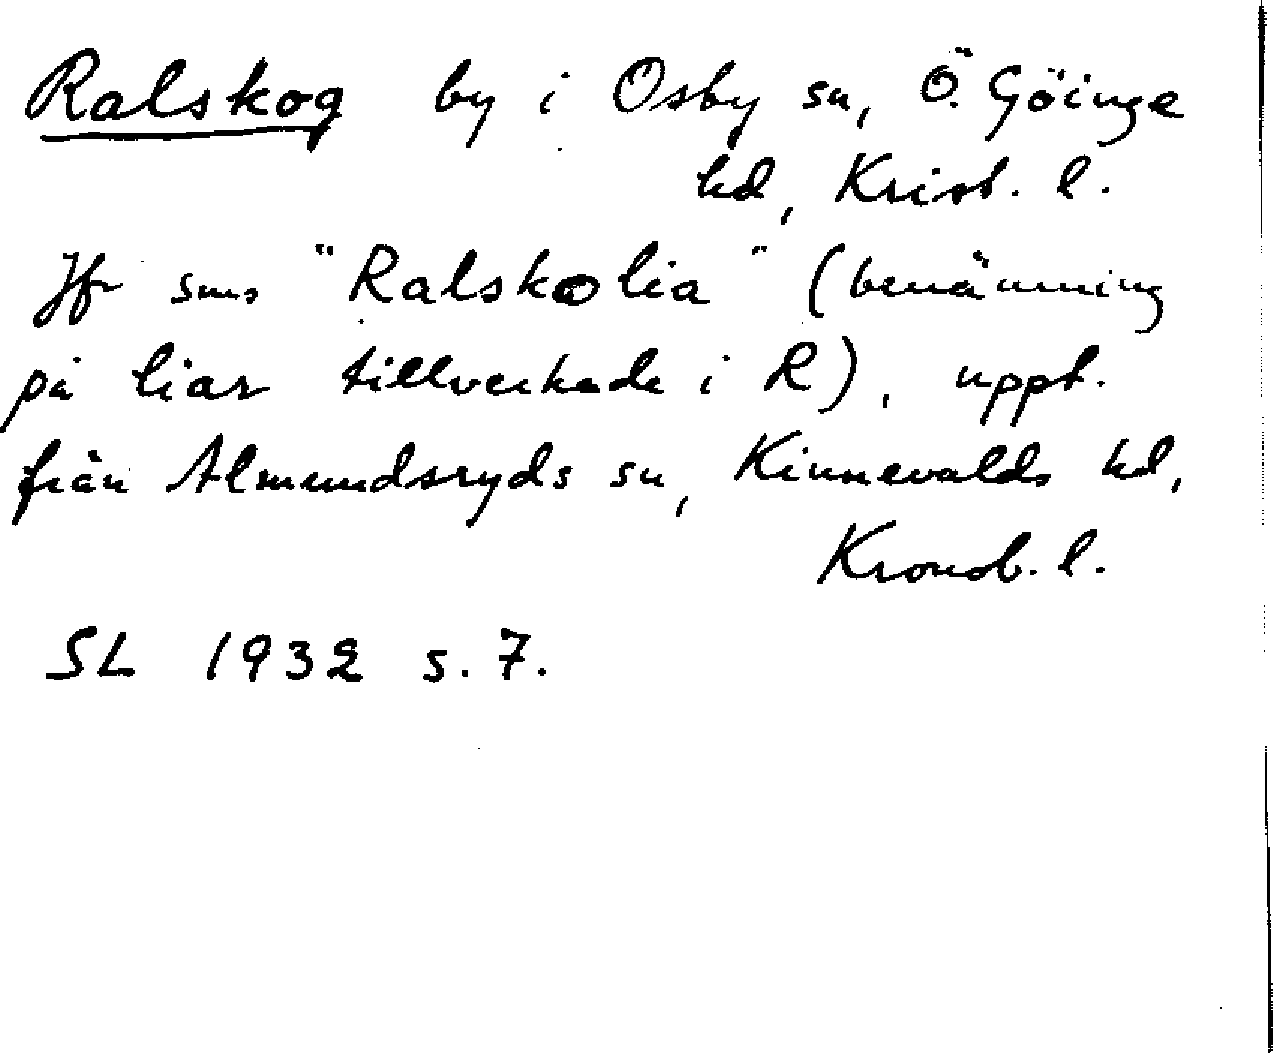 Ralskog by i Osby sn, Ö. Göinge
hd, Krist. l.
Jfr sms "Ralskolia" (benämning
på liar tillverkade i R), uppt.
från Almundsryds sn, Kinnevalds hd,
Kronob. l.
SL 1932 s. 7.